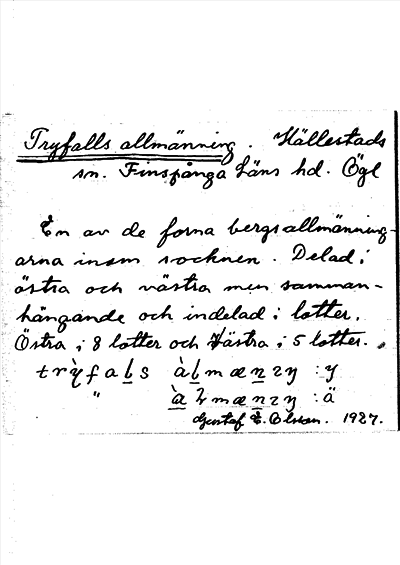 Tryfalls allmänning. Hällestads
sn. Finspånga Läns hd. Ögl
En av de forna bergsallmänning-
arna inom socknen. Delad i
östra och västra men samman-
hängande och indelad i lotter.
Östra i 8 lotter och Västra i 5 lotter.
trỳfals àlmænɪŋ : y
" àlmænɪŋ : ä
Gustaf E. Olsson. 1927.